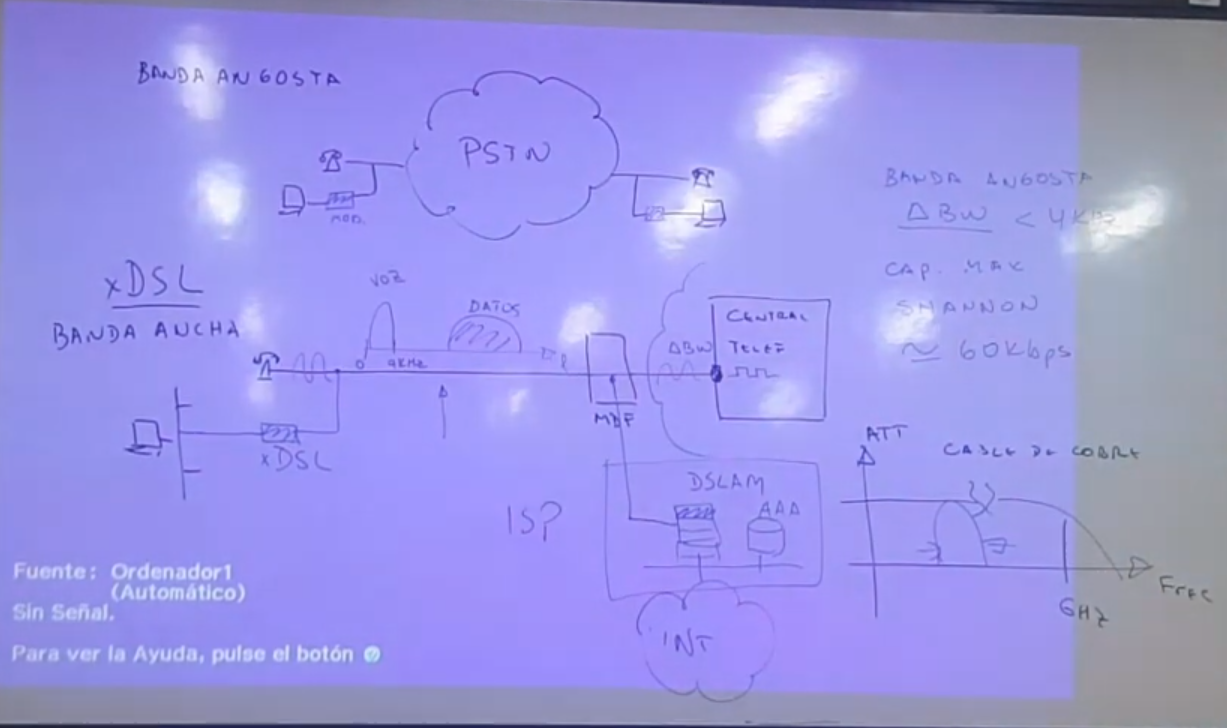 BANDA ANGOSTA
PSTN
MOD.
BANDA ANGOSTA
ΔBW < 4KHz
CAP. MAX
SHANNON
≃ 60Kbps
xDSL
BANDA ANCHA
VOZ
DATOS
0
4KHz
f
xDSL
MDF
ΔBW
CENTRAL
TELEF
ISP
DSLAM
AAA
INT
ATT
CABLE DE COBRE
GHz
Frec
Fuente: Ordenador1
(Automático)
Sin Señal.
Para ver la Ayuda, pulse el botón